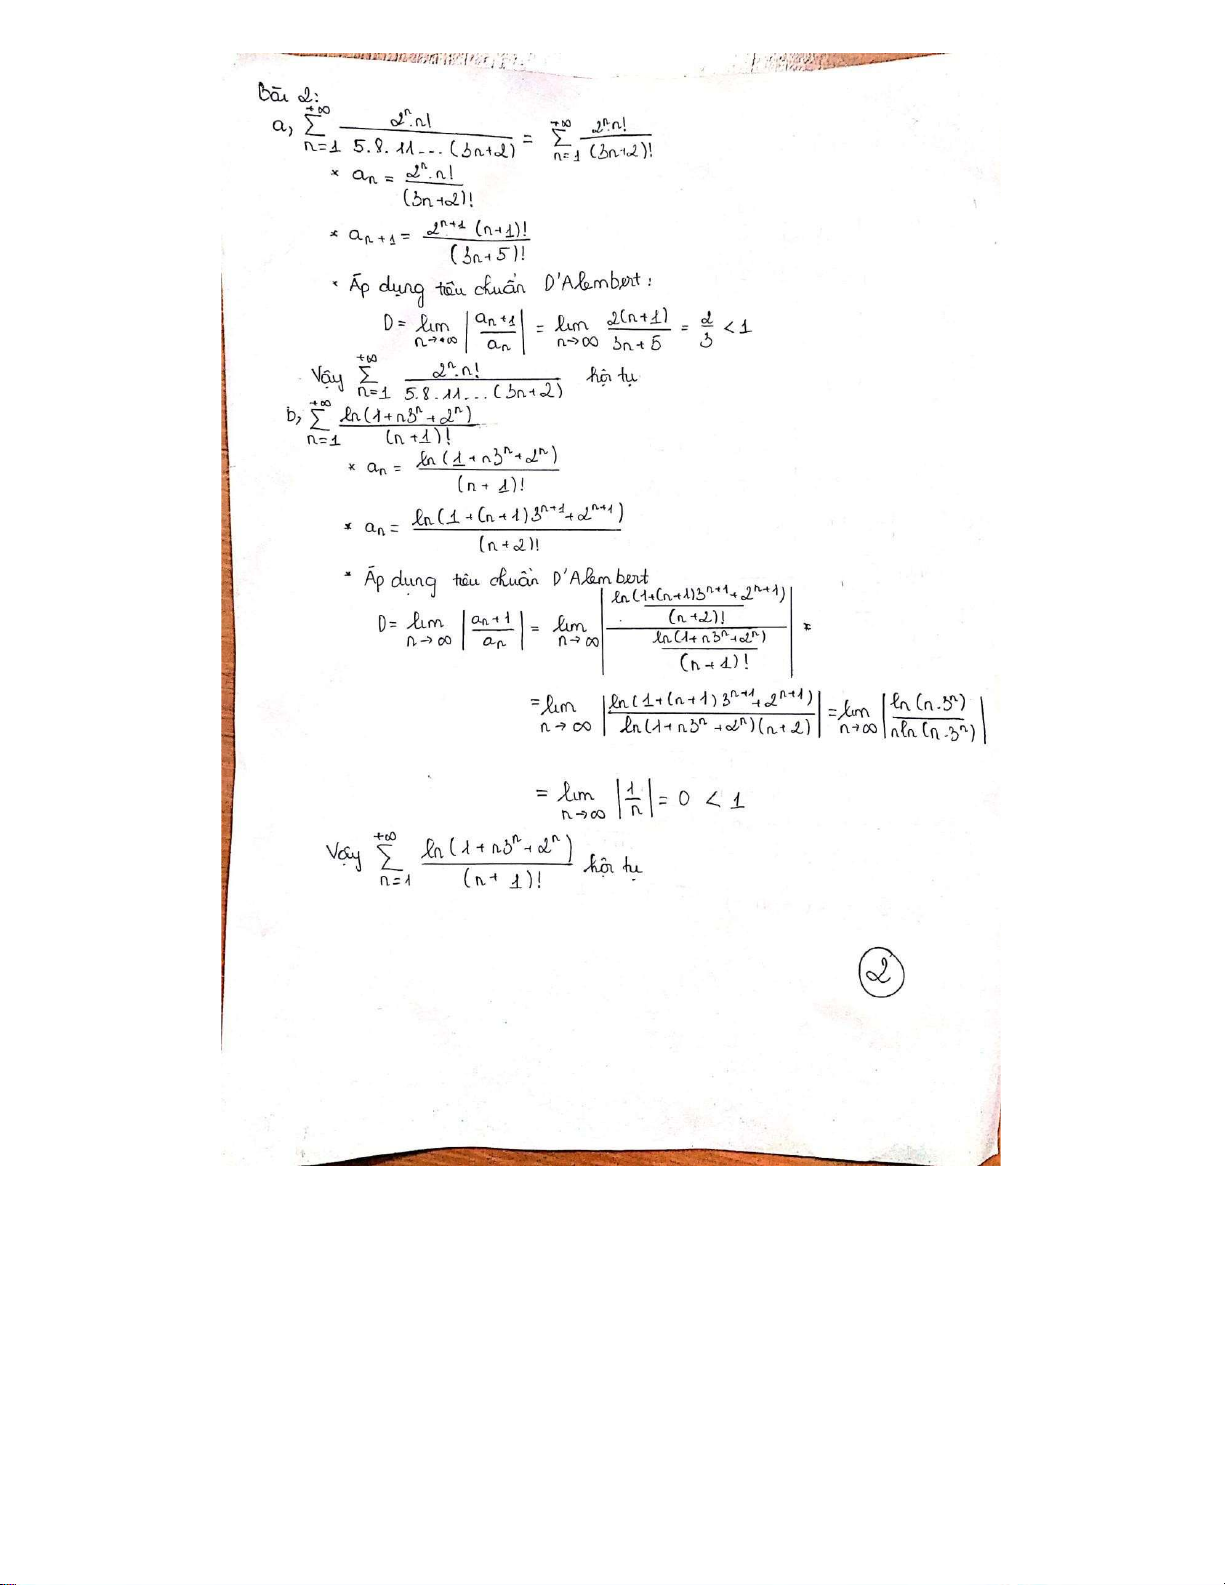 Bài 2:
a, +∞ ∑ n=1 2ⁿ.n! / 5.8.11....(3n+2) = +∞ ∑ n=1 2ⁿ.n! / (3n+2)!
* aₙ = 2ⁿ.n! / (3n+2)!
* aₙ₊₁ = 2ⁿ⁺¹ (n+1)! / (3n+5)!
* Áp dụng tiêu chuẩn D'Alembert:
D = lim n→+∞ |aₙ₊₁ / aₙ| = lim n→∞ 2(n+1) / 3n+5 = 2/3 < 1
Vậy +∞ ∑ n=1 2ⁿ.n! / 5.8.11...(3n+2) hội tụ
b, +∞ ∑ n=1 ln(1+n3ⁿ+2ⁿ) / (n+1)!
* aₙ = ln(1+n3ⁿ+2ⁿ) / (n+1)!
* aₙ = ln(1+(n+1)3ⁿ⁺¹+2ⁿ⁺¹) / (n+2)!
* Áp dụng tiêu chuẩn D'Alembert
D = lim n→∞ |aₙ₊₁ / aₙ| = lim n→∞ |ln(1+(n+1)3ⁿ⁺¹+2ⁿ⁺¹) / (n+2)! / ln(1+n3ⁿ+2ⁿ) / (n+1)!| *
= lim n→∞ |ln(1+(n+1)3ⁿ⁺¹+2ⁿ⁺¹) / ln(1+n3ⁿ+2ⁿ)(n+2)| = lim n→∞ |ln(n.3ⁿ) / nln(n.3ⁿ)|
= lim n→∞ |1/n| = 0 < 1
Vậy +∞ ∑ n=1 ln(1+n3ⁿ+2ⁿ) / (n+1)! hội tụ
2